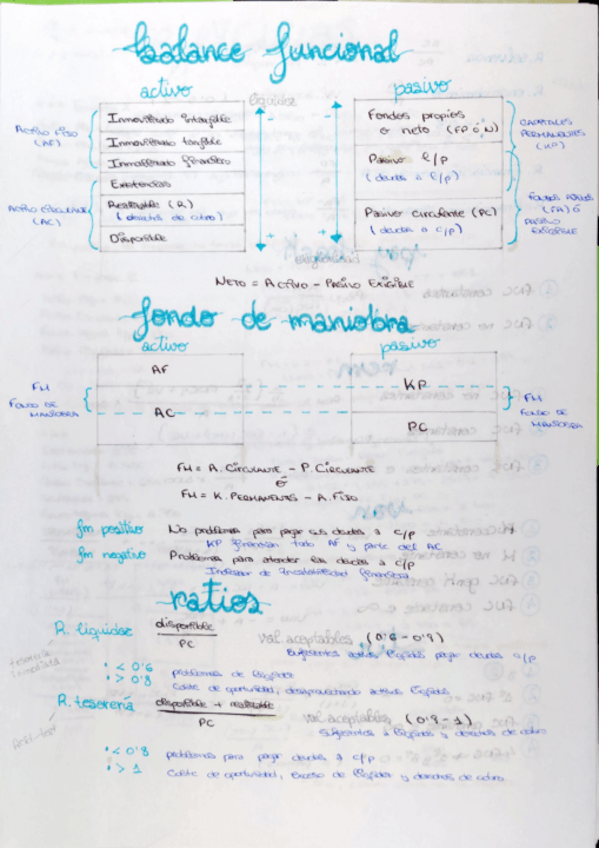 balance funcional
activo
pasivo
liquidez
Inmovilizado intangible
Inmovilizado tangible
Inmovilizado financiero
Existencias
Realizable (R)
(derechos de cobro)
Disponible
ACTIVO FIJO
(AF)
ACTIVO CIRCULANTE
(AC)
Fondos propios
o neto (FP ó N)
Pasivo l/p
(deudas a l/p)
Pasivo circulante (PC)
(deudas a c/p)
CAPITALES
PERMANENTES
(KP)
(FA) Ó
PASIVO
EXIGIBLE
exigibilidad
NETO = ACTIVO - PASIVO EXIGIBLE
fondo de maniobra
activo
pasivo
AF
AC
KP
PC
FM
FONDO DE
MANIOBRA
FM
FONDO DE
MANIOBRA
FM = A. CIRCULANTE - P. CIRCULANTE
ó
FM = K. PERMANENTES - A. FIJO
fm positivo No problemas para pagar sus deudas a c/p
KP financian todo AF y parte del AC
fm negativo Problemas para atender las deudas a c/p
Indicador de inestabilidad financiera
ratios
R. liquidez disponible
PC
val. aceptables (0'6 - 0'9)
Suficientes activos líquidos pagar deudas c/p
tesorería
inmediata
• < 0'6 problemas de liquidez
• > 0'8 Coste de oportunidad, desaprovechando activos líquidos
R. tesorería disponible + realizable
PC
val. aceptables (0'9 - 1)
liquidez y derechos de cobro
• < 0'8 problemas para pagar deudas a c/p
• > 1 Coste de oportunidad, exceso de liquidez y derechos de cobro